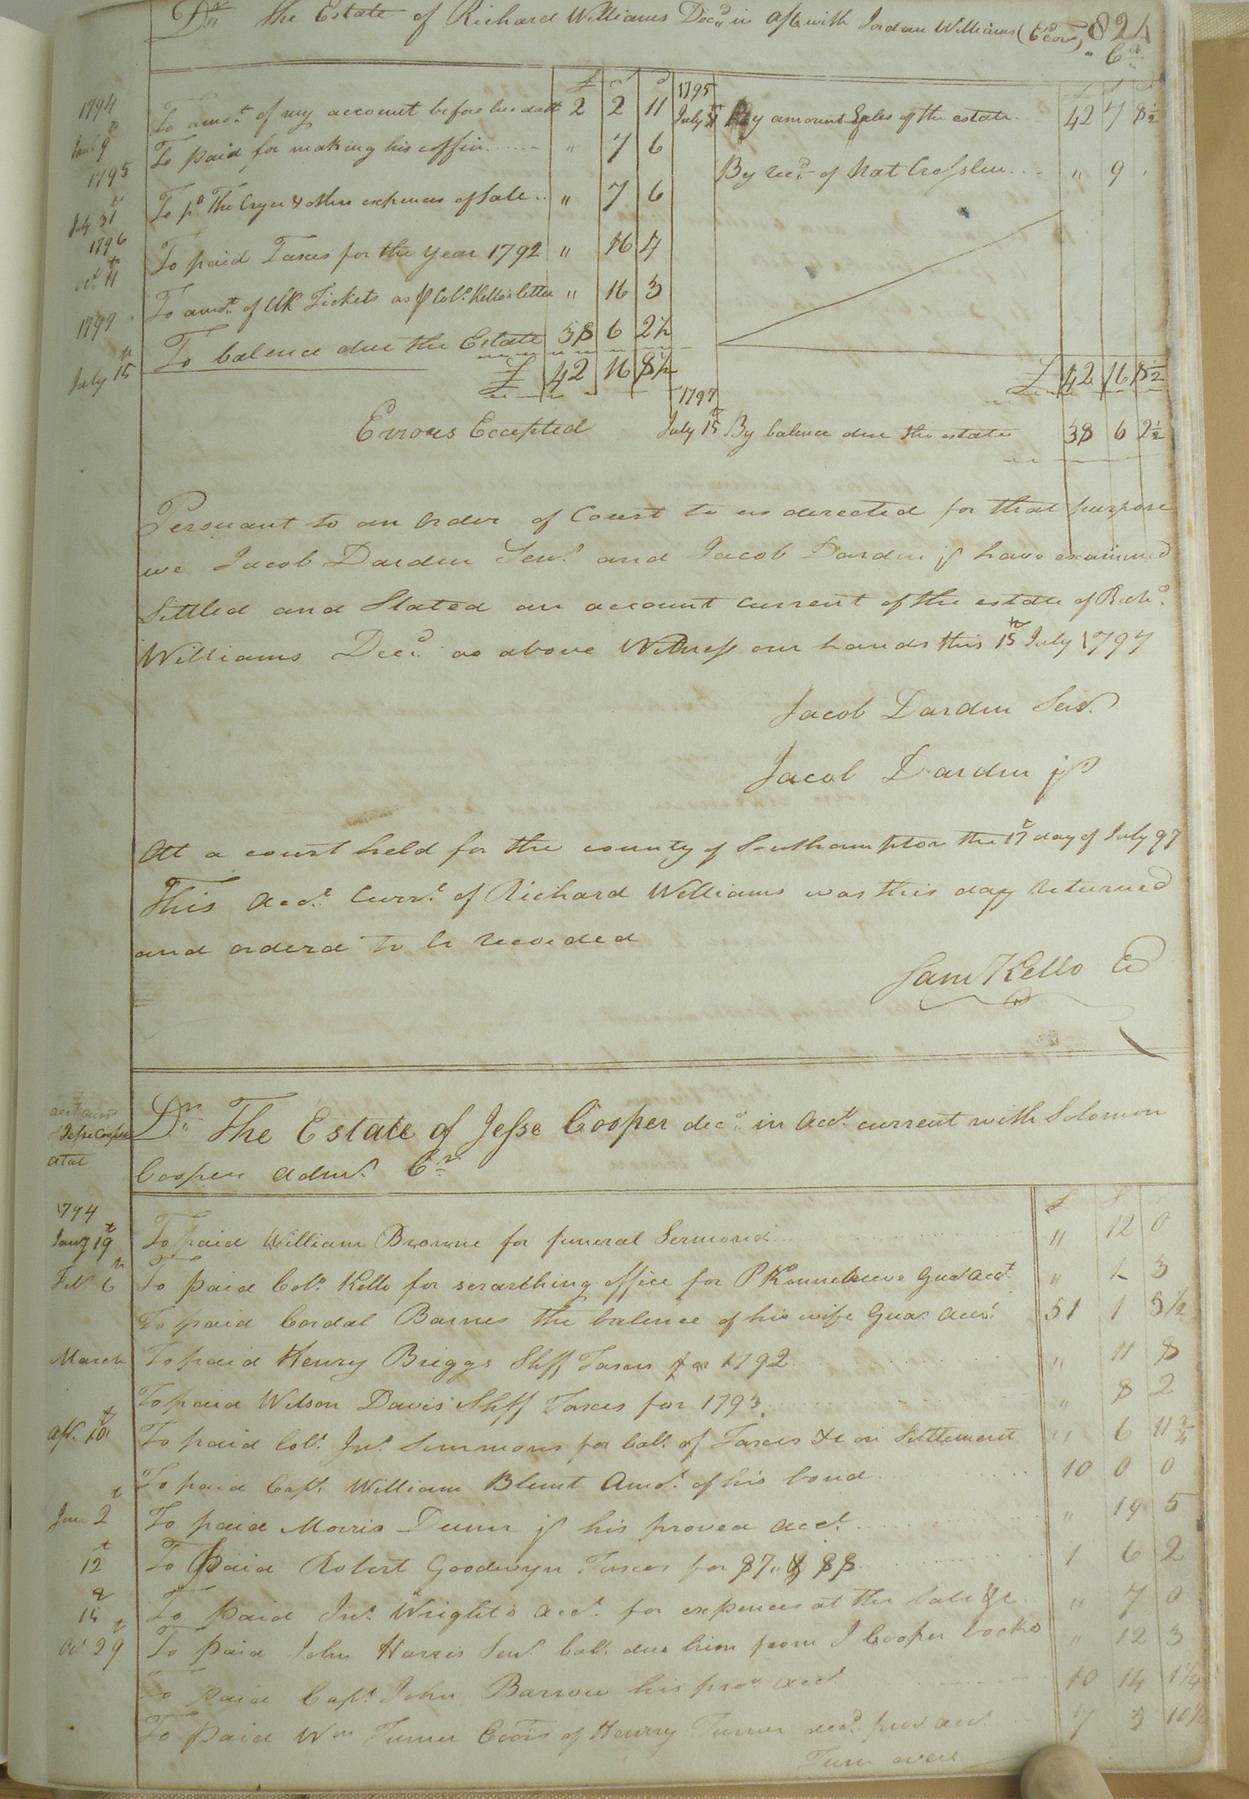 Dr. The Estate of Richard Williams Decd. in a/c with Jordan Williams (Exor) Cr. 824
£ s d
1794 To amot. of my account before his death 2 2 11
Jany 9th To paid for making his coffin " 7 6
1795 To pd The Cryer & other expences of sale " 7 6
July 31t
1796 To paid Taxes for the year 1792 " 16 4
Oct. 11th To amot. of Clk Tickets as p Colo. Kello's letter " 16 3
1797 July 15th To balence due the Estate 38 6 2½
£ 42 16 8½
1795 July 31t By amount Sales of the estate 42 7 8½
By recd. of Nat Crosslen " 9 "
£ 42 16 8½
Errors Excepted
1797 July 15th By balence due the estate 38 6 2½
Persuant to an Order of Court to us derected for that purpose
we Jacob Darden Senr. and Jacob Darden jr have examined
Settled and Stated an account current of the estate of Richd.
Williams Decd. as above Witness our hands this 15th July 1797
Jacob Darden Senr.
Jacob Darden jr
At a court held for the county of Southampton the 17th day of July 97
This Acct. Currt. of Richard Williams was this day returned
and orderd to be recorded
Sam Kello Cl
Jesse Cooper
Dr. The Estate of Jesse Cooper decd. in acct. current with Solomon
Cooper admr. Cr.
1794 £ s
Jany 19t To paid William Browne for funeral Sermond " 12 0
Feb. 6th To paid Colo. Kello for serarthing office for Guar acct. " 3
To paid Cordal Barnes the balence of his wife Guar. acct. 51 1 5½
March To paid Henry Briggs Shff Taxes for 1792 " 11 8
To paid Wilson Davis Shff Taxes for 1793 " 8 2
apl. 10t To paid Colo. Jno. Simmons for balo. of Taxes &c on Settlement " 6 11¾
To paid Capt. William Blunt Amot. of his bond 10 0 0
Jun 2t To paid Morris Dunn jr his proved acct. " 19 5
12t To paid Robert Goodwyn Taxes for 87 & 88 1 6 2
14 To paid Jno. Wright's acct. for expences at the sale &c " 7 0
Oct 29t To paid John Harris Senr. bal. due him from J Cooper books " 12 3
To paid Capt. John Barrow his prov acct. 10 14 1¼
To paid Wm Turner Exors of Henry Turner decd. prov acct. 7 3
Turn over